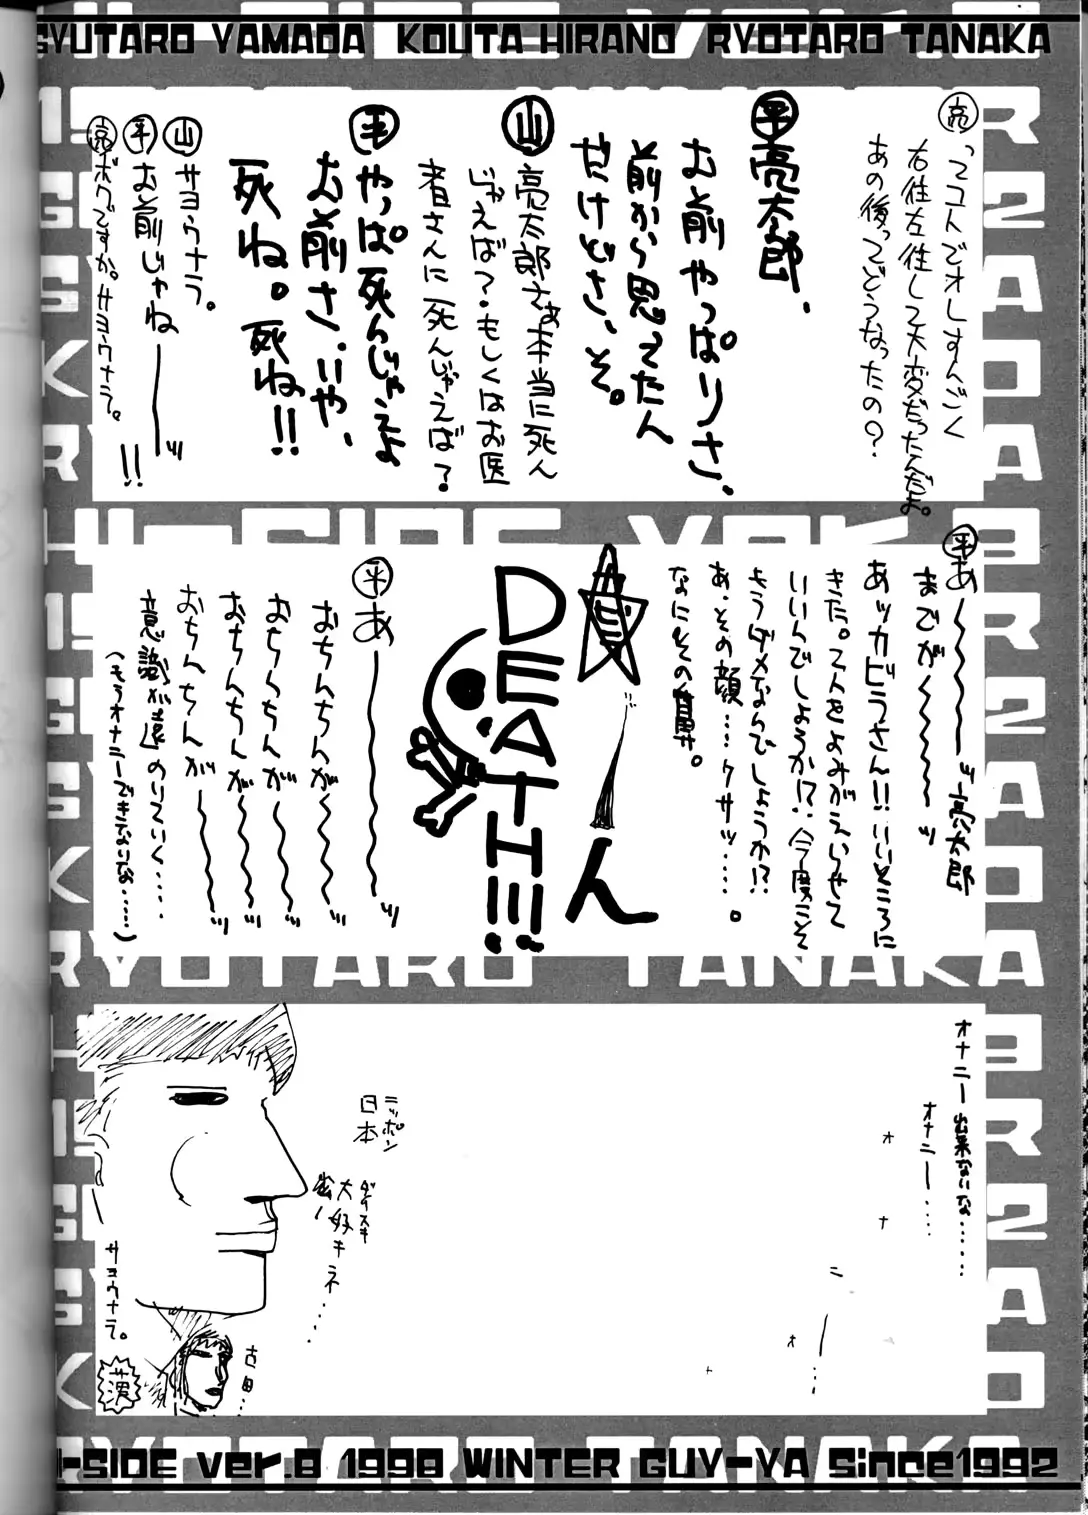 GYUTARO YAMADA KOUTA HIRANO RYOTARO TANAKA
亮 ってコトでオレすんごく
右往左往して大変だったんだよ。
あの後ってどうなったの？
平 亮太郎、
お前やっぱりさ、
前から思ってたん
だけどさ、そ。
山 亮太郎さぁ本当に死ん
じゃえば？もしくはお医
者さんに死んじゃえば？
平 やっぱ死んじゃえよ
お前さ、いや、
死ね。死ね!!
山 サヨウナラ。
平 お前じゃね――ッ!!
亮 ボクですか。サヨウナラ。
平 あ〜〜〜〜ッ亮太郎
までが〜〜〜〜ッ
あッカビラさん!!いいところに
きた。2人をよみがえらせて
いいんでしょうか!?今度こそ
もうダメなんでしょうか!?
あ、その顔……クサッ……。
なにその
ん
DEATH!!!
平 あ――〜〜〜〜ッ
おちんちんが〜〜〜〜ッ
おちんちんが〜〜〜〜ッ
おちんちんが〜〜〜〜ッ
おちんちんが〜〜〜〜ッ
意識が遠のいていく……
(もうオナニーできないな……)
オナニー出来ないな……
オナニー……
オ
ナ
ニ
ー
…
ニッポン
日本
ダイスキ
大好キネ…
サヨウナラ。
古田…
HI-SIDE ver.8 1998 WINTER GUY-YA Since1992